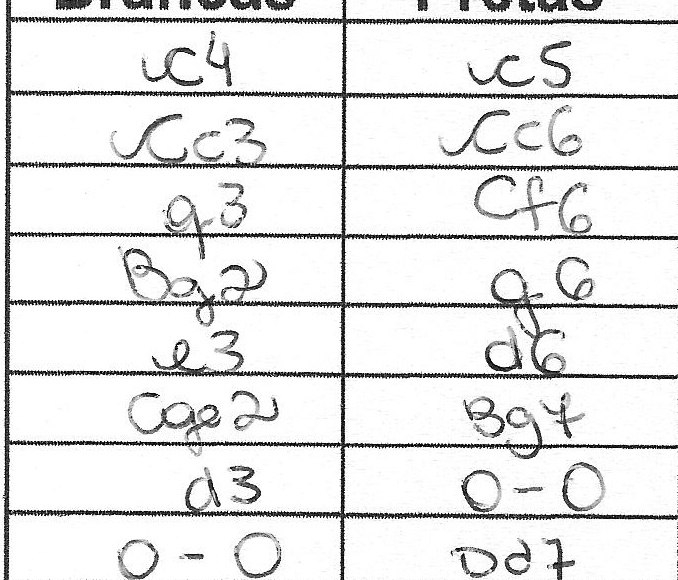 Brancas Pretas
c4 c5
Cc3 Cc6
g3 Cf6
Bg2 g6
e3 d6
Cge2 Bg7
d3 0-0
0-0 Dd7